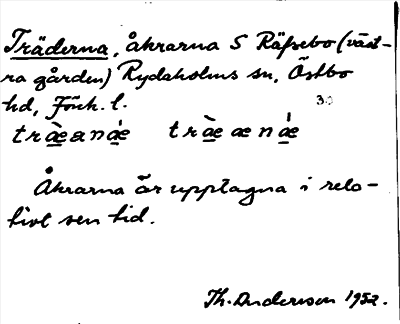 Träderna, åkrarna S Räfsebo (väst-
ra gården) Rydaholms sn, Östbo
hd, Jönk. l.
30
træ̀anǽ træ̀ænǽ
Åkrarna är upptagna i rela-
tivt sen tid.
Th. Anderson 1952.